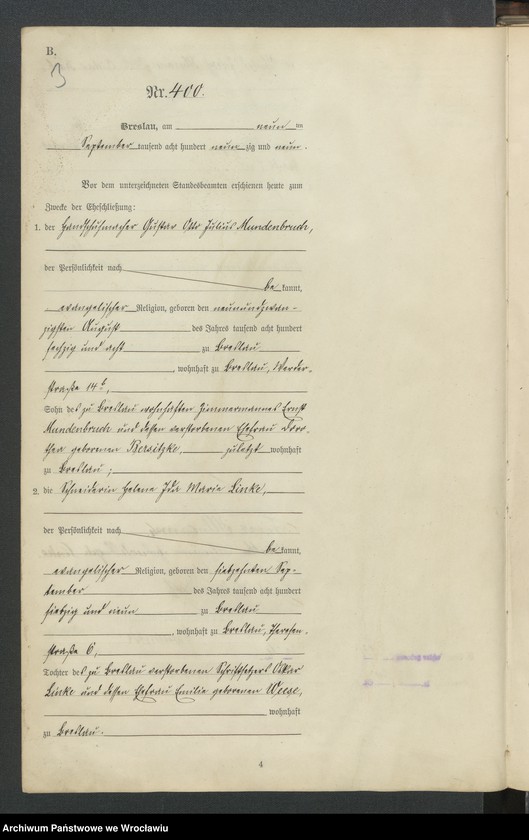 B.
3
Nr. 400.
Breslau, am neun ten
September tausend acht hundert neun zig und neun.
Vor dem unterzeichneten Standesbeamten erschienen heute zum
Zwecke der Eheschließung:
1. der Handschuhmacher Gustav Otto Julius Mundenbruch,
der Persönlichkeit nach
be kannt,
evangelischer Religion, geboren den neunundzwan-
zigsten August des Jahres tausend acht hundert
sechzig und acht zu Breslau
, wohnhaft zu Breslau, Werder-
straße 14b,
Sohn des zu Breslau wohnhaften Zimmermannes Ernst
Mundenbruch und dessen verstorbenen Ehefrau Doro-
thea geborenen Bersitzke, zuletzt wohnhaft
zu Breslau;
2. die Schneiderin Helene Ida Maria Linke,
der Persönlichkeit nach
be kannt,
evangelischer Religion, geboren den siebzehnten Sep-
tember des Jahres tausend acht hundert
siebzig und neun zu Breslau
, wohnhaft zu Breslau, Theresen-
straße 6,
Tochter des zu Breslau verstorbenen Schriftsetzers Oskar
Linke und dessen Ehefrau Emilie geborenen Weese,
wohnhaft
zu Breslau.
4
Archiwum Państwowe we Wrocławiu